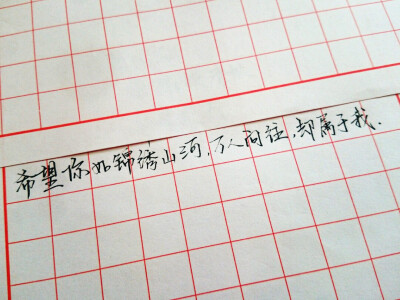 希望你如锦绣山河，万人向往，却属于我.